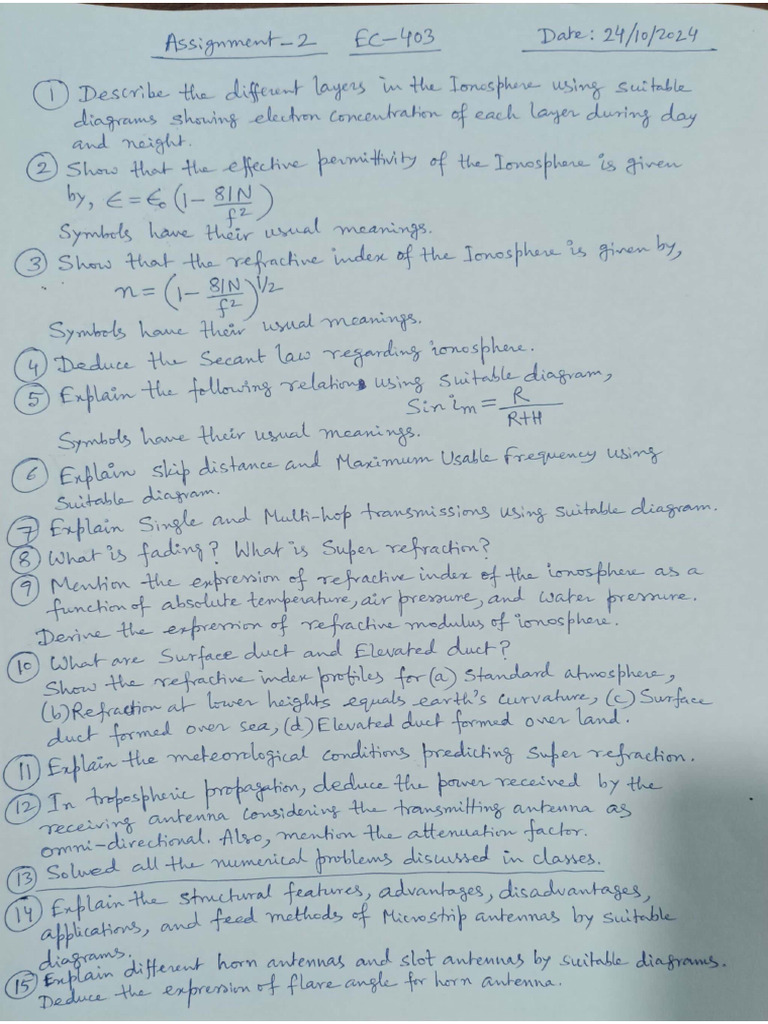 Assignment-2 EC-403 Date: 24/10/2024
① Describe the different layers in the Ionosphere using suitable
diagrams showing electron concentration of each layer during day
and neight.
② Show that the effective permittivity of the Ionosphere is given
by, ∈ = ∈₀ (1 - 81N/f²)
Symbols have their usual meanings.
③ Show that the refractive index of the Ionosphere is given by,
n = (1 - 81N/f²)^1/2
Symbols have their usual meanings.
④ Deduce the Secant law regarding ionosphere.
⑤ Explain the following relations using suitable diagram,
Sin im = R/R+H
Symbols have their usual meanings.
⑥ Explain skip distance and Maximum Usable Frequency using
suitable diagram.
⑦ Explain Single and Multi-hop transmissions using suitable diagram.
⑧ What is fading? What is Super refraction?
⑨ Mention the expression of refractive index of the ionosphere as a
function of absolute temperature, air pressure, and water pressure.
Derive the expression of refractive modulus of ionosphere.
⑩ What are Surface duct and Elevated duct?
Show the refractive index profiles for (a) Standard atmosphere,
(b) Refraction at lower heights equals earth's curvature, (c) Surface
duct formed over sea, (d) Elevated duct formed over land.
⑪ Explain the meteorological conditions predicting super refraction.
⑫ In tropospheric propagation, deduce the power received by the
receiving antenna considering the transmitting antenna as
omni-directional. Also, mention the attenuation factor.
⑬ Solved all the numerical problems discussed in classes.
⑭ Explain the structural features, advantages, disadvantages,
applications, and feed methods of Microstrip antennas by suitable
diagrams.
⑮ Explain different horn antennas and slot antennas by suitable diagrams.
Deduce the expression of flare angle for horn antenna.